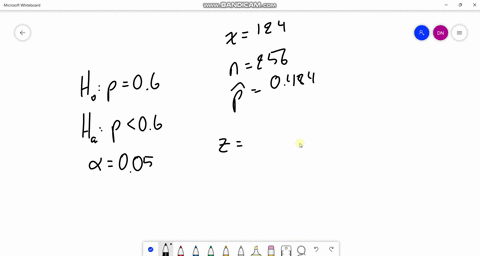 Microsoft Whiteboard
WWW.BANDICAM.COM
DN
x = 124
n = 256
p̂ = 0.484
H₀: p = 0.6
Hₐ: p < 0.6
α = 0.05
z =